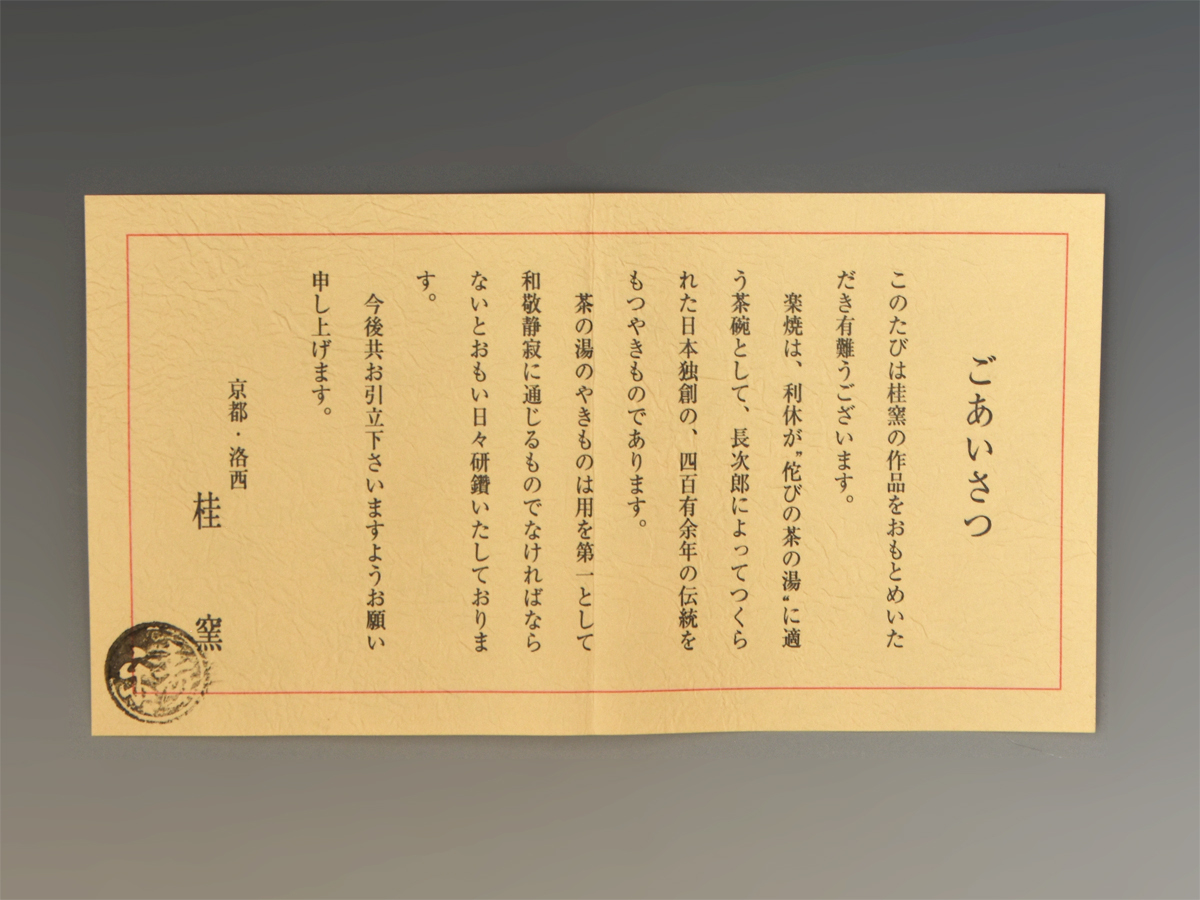 ごあいさつ
このたびは桂窯の作品をおもとめいた
だき有難うございます。
楽焼は、利休が〝侘びの茶の湯〟に適
う茶碗として、長次郎によってつくら
れた日本独創の、四百有余年の伝統を
もつやきものであります。
茶の湯のやきものは用を第一として
和敬静寂に通じるものでなければなら
ないとおもい日々研鑽いたしておりま
す。
今後共お引立下さいますようお願い
申し上げます。
京都・洛西
桂窯